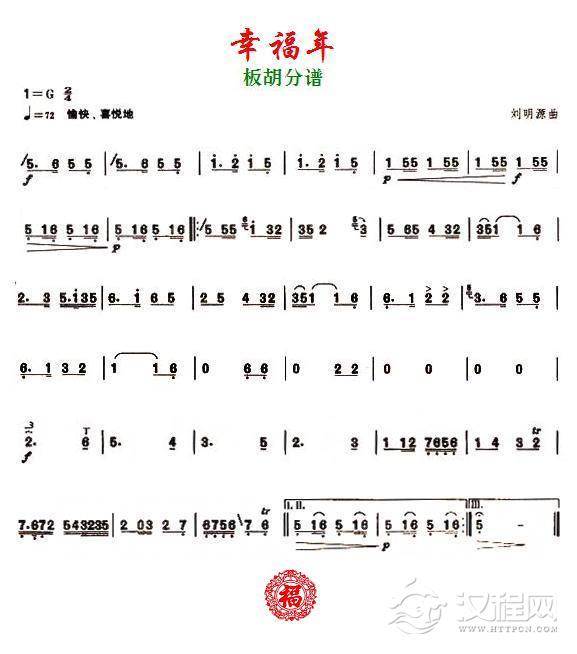 幸福年
板胡分谱
1=G 2/4
♩=72 愉快、喜悦地
刘明源 曲
/5. 6 5 5 | /5. 6 5 5 | 1. 2 1 5 | 1. 2 1 5 | 1 55 1 55 | 1 55 1 55 |
f p f
5 16 5 16 | 5 16 5 16 |: /5 55 6 1 32 | 35 2 3 | 5 65 4 32 | 351 1 6 |
p
2. 3 5.135 | 6. 1 6 5 | 2 5 4 32 | 351 1 6 | 6. 1 2 2 | 3. 6 5 5 |
6. 1 3 2 | 1 1 6 | 0 6 6 | 0 2 2 | 0 0 | 0 0 |
3 T tr
2. 6 | 5. 4 | 3. 5 | 2. 3 | 1 12 7656 | 1 4 3 2 |
f
tr I. II. III.
7.672 543235 | 2 03 2 7 | 6756 \7 6 | 5 16 5 16 | 5 16 5 16 :| 5 - |
p
福
汉程网
WWW.HTTPCN.COM